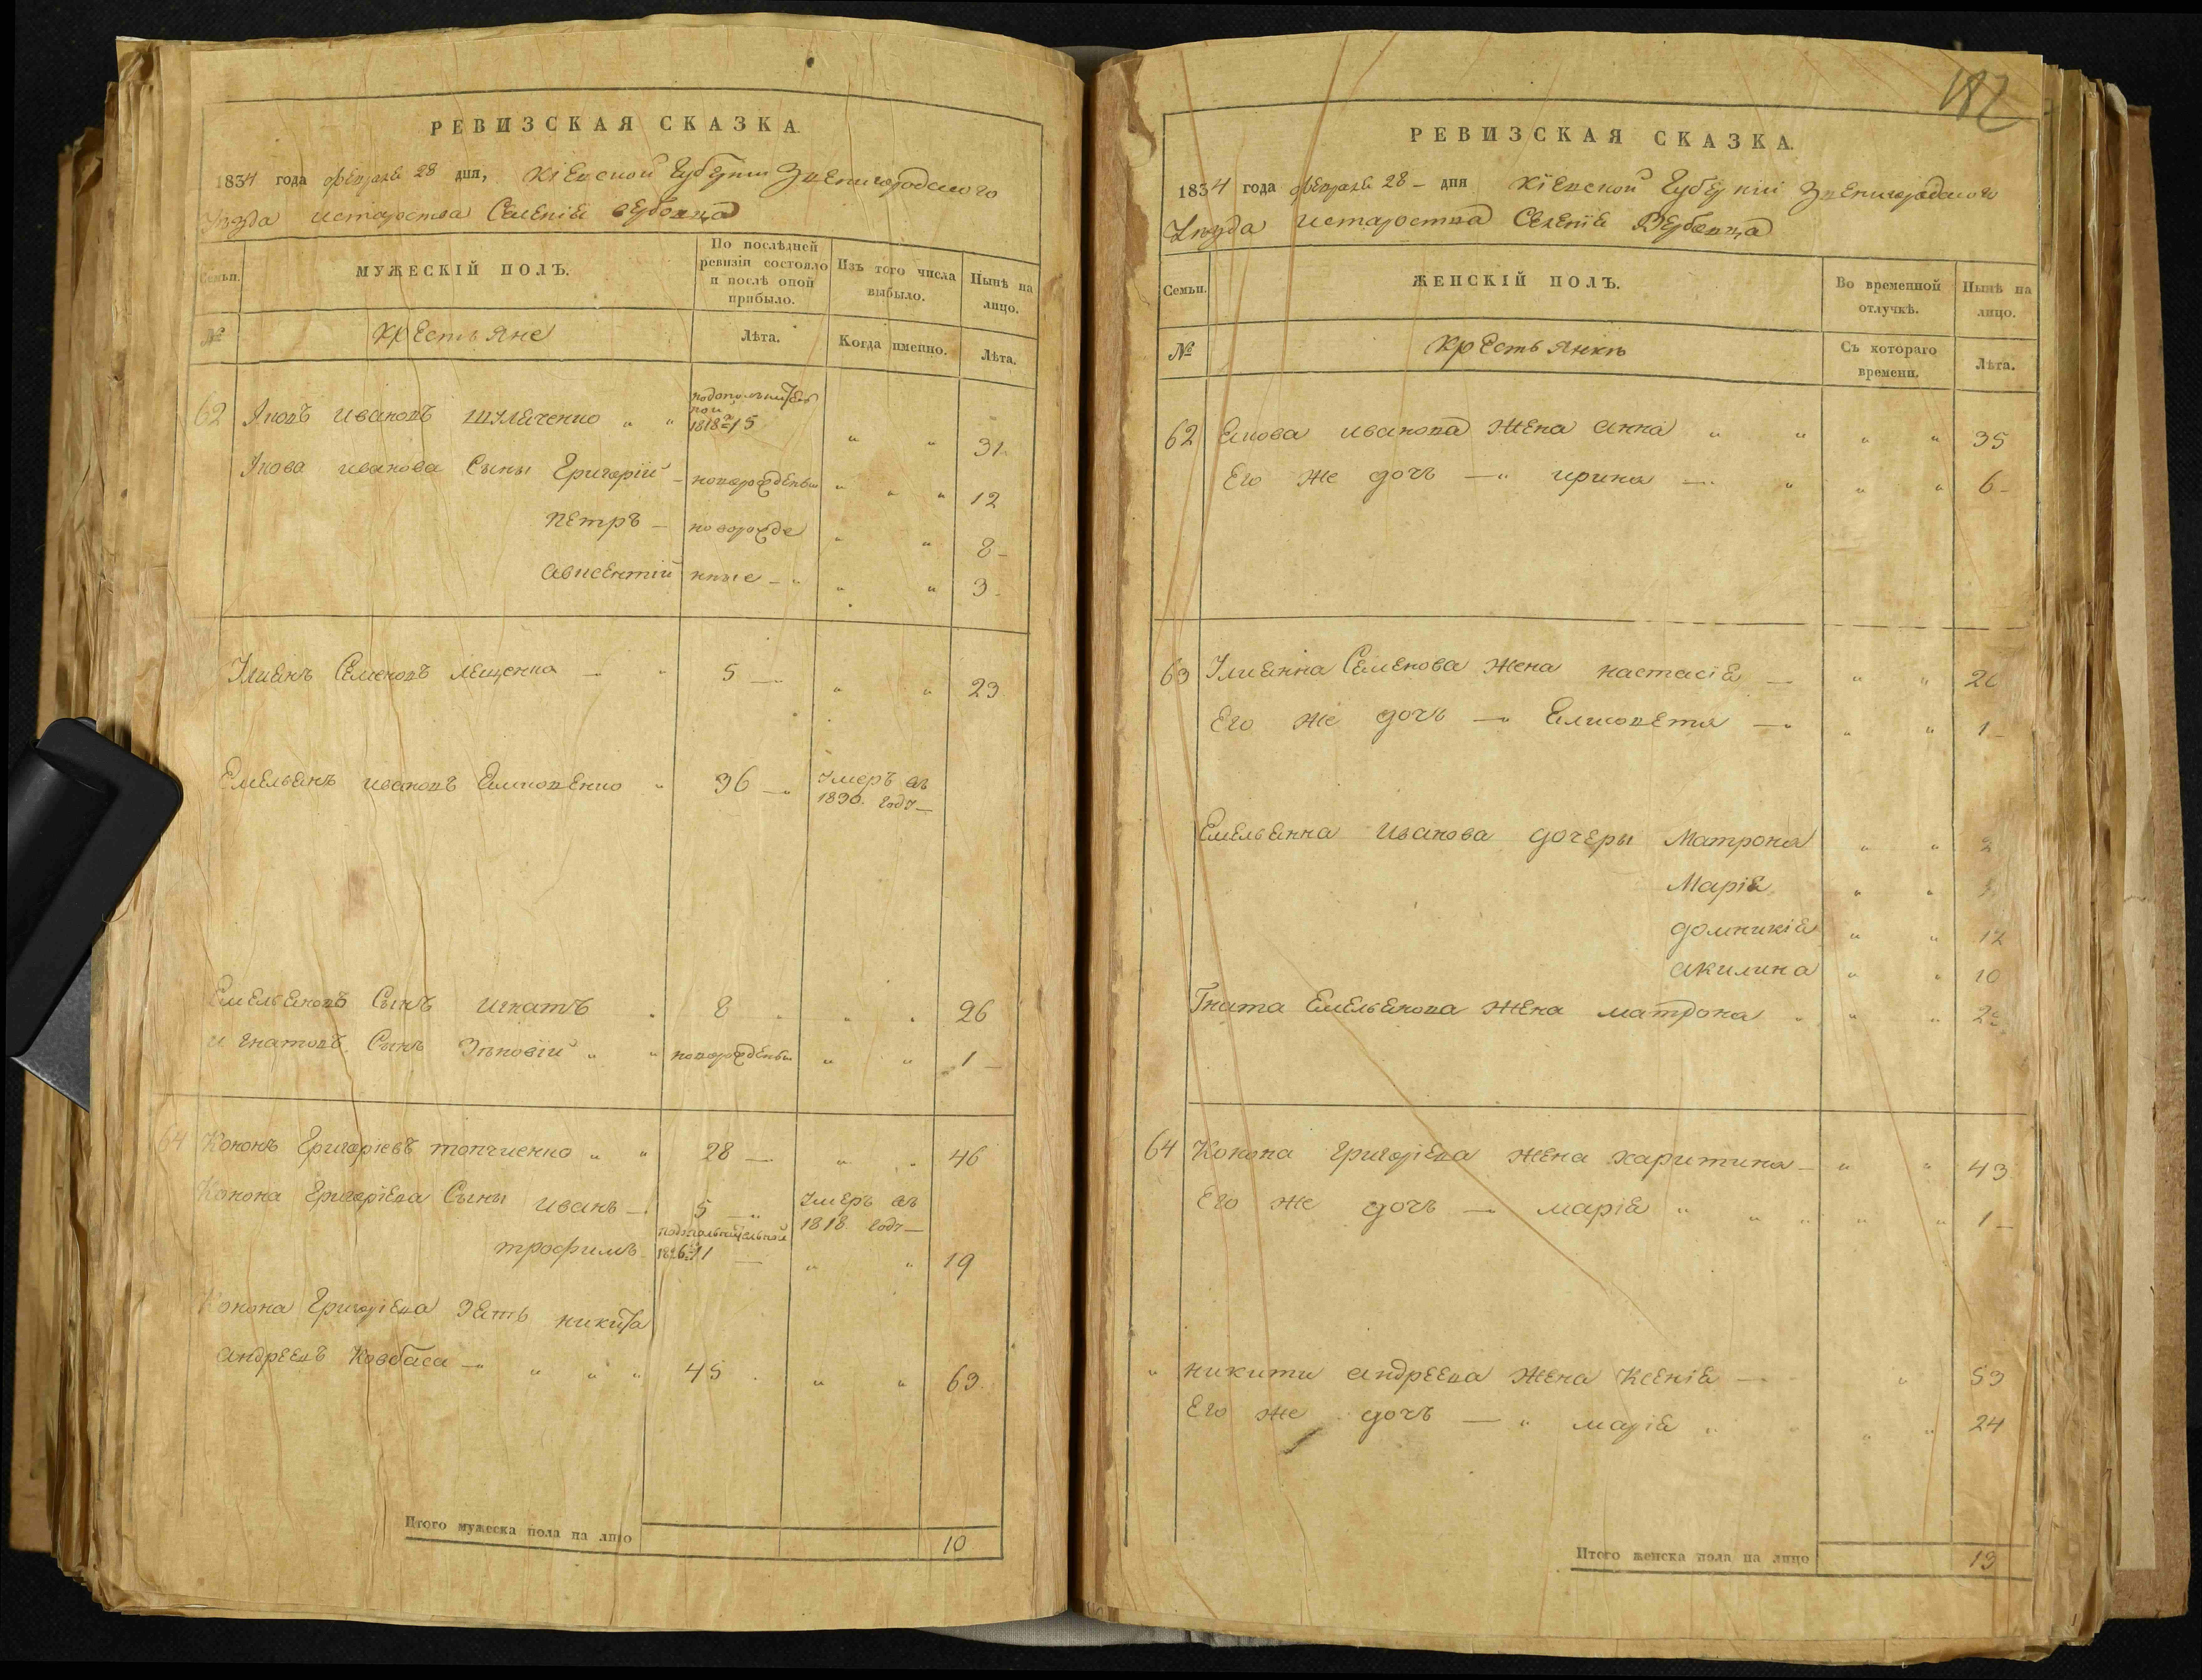 РЕВИЗСКАЯ СКАЗКА.
1834 года февраля 28 дня, Кіевской Губерніи Звенигородского
Уезда и староства Селенія вербовца
Семьи.
МУЖЕСКІЙ ПОЛЪ.
По послѣдней ревизіи состояло и послѣ оной прибыло.
Изъ того числа выбыло.
Нынѣ на лицо.
№
Крестьяне
Лѣта.
Когда именно.
Лѣта.
62 Яковъ Ивановъ Шуляченко " " 1818 15 " " 31
Якова иванова Сыны Григорій – новорожденны " " " 12
Петръ – новорожде " " 8 –
авксентій нные – " " " 3 –
Улиянъ Семеновъ Лещенко – " 5 – " " 23
Емельянъ ивановъ " 36 – " Умеръ въ
1830. году –
Емельяновъ Сынъ игнатъ " 8 " " " 26
игнатовъ Сынъ Зѣновій " " новорожденны " " 1 –
64 Кононъ Григоріевъ топчиенко " " 28 – " " 46
Конона Григоріева Сыны иванъ – 5 – " Умеръ въ
1818 годъ –
трофимъ 11 – " " 19
Конона Григоріева зять никита
андреевъ Ковбаса – " " " " 45 " " 63
Итого мужеска пола на лицо 10
182
РЕВИЗСКАЯ СКАЗКА.
1834 года февраля 28 – дня Кіевской Губерніи Звенигородского
Уезда и староства Селенія Вербовца
Семьи.
ЖЕНСКІЙ ПОЛЪ.
Во временной отлучкѣ.
Нынѣ на лицо.
№
Крестьянкѣ
Съ котораго времени.
Лѣта.
62 Якова иванова жена анна " " " " 35
Его же дочь – " ирина – " " " 6 –
63 Улиянна Семенова жена настасія – " "
Его же дочь – " Елисовета – " " " 1 –
Емельянна иванова дочеры Матрона " "
Марія " "
домникія " " 12
акилина " " 10
Гната Емельянова жена матрона " " "
64 Конона григоріева жена харитина – " " 43
Его же дочь – марія " " " " " 1 –
" никити андреева жена Ксенія – " 53
Его же дочь – " марія " " " " 24
Итого женска пола на лицо 13